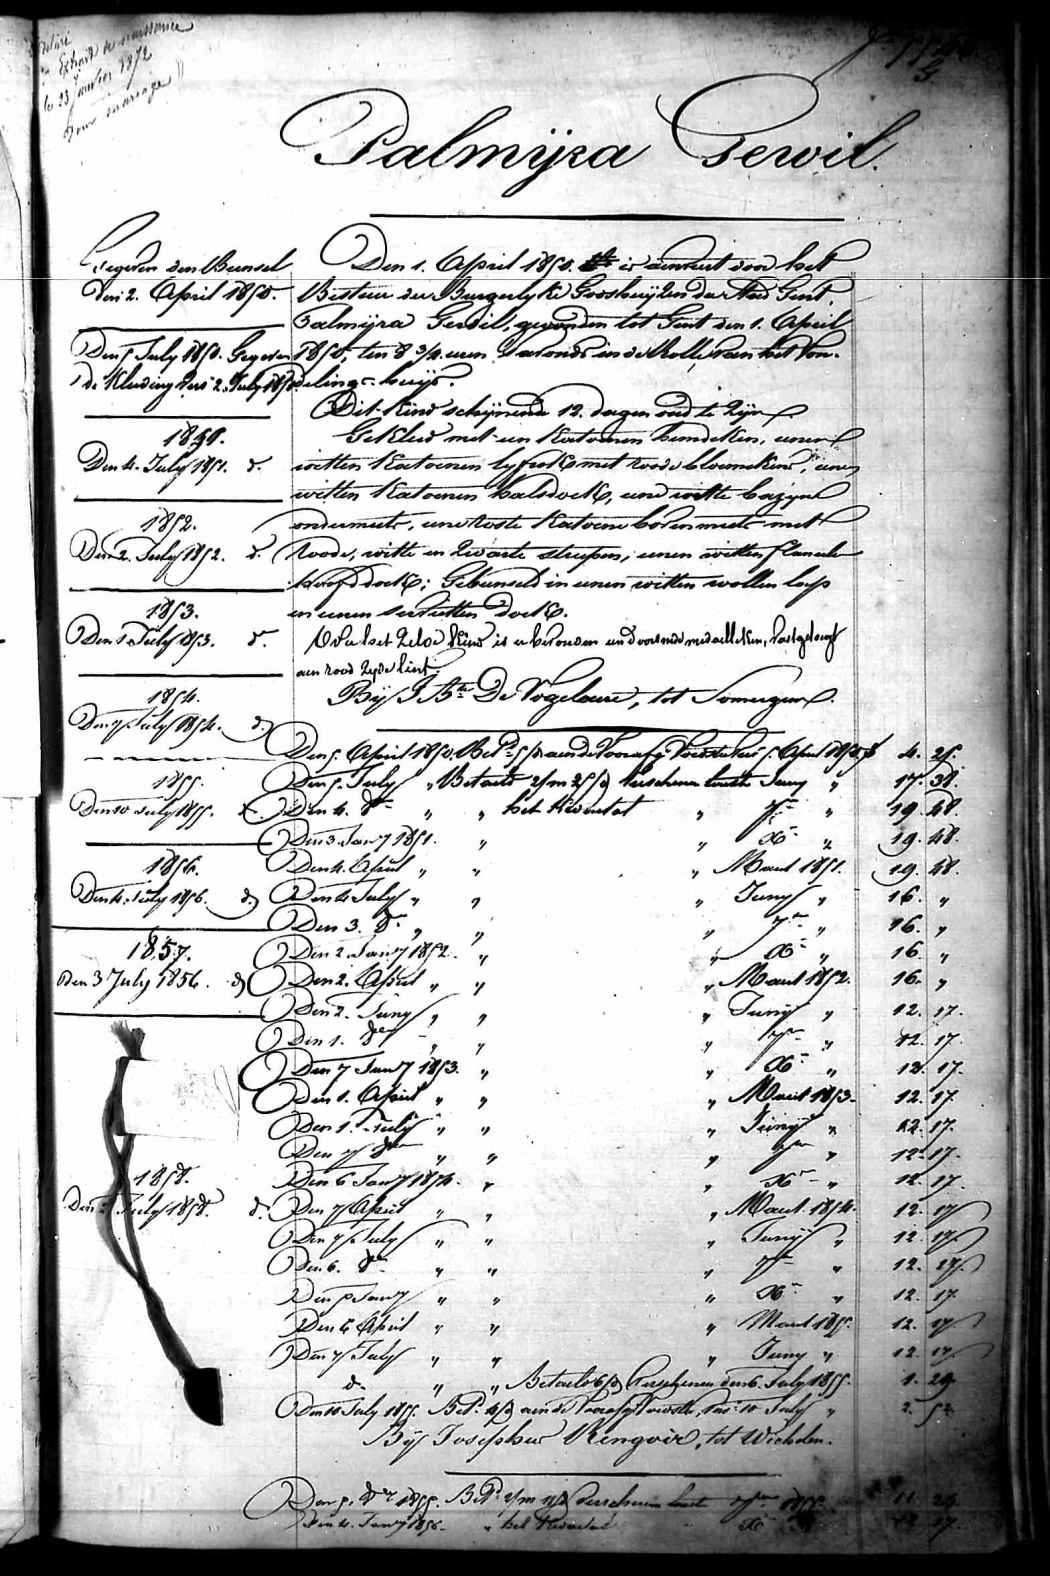 Extrait de naissance
le 23 Janvier 1872
pour mariage
Palmÿra Gewil.
Gegeven den Bunsel
den 2. April 1850.
Den 5 July 1850. Gegeven
de Kleeding 2. July 1850
1851.
Den 4. July 1851. d°.
1852.
Den 2. July 1852. d°.
1853.
Den 1. July 1853. d°.
1854.
Den 7. July 1854. d°.
1855.
Den 10 July 1855. d°.
1856.
Den 4. July 1856. d°.
1857.
Den 3 July 1856. d°
1858.
Den 2 July 1858. d°.
Den 1. April 1850. is aenveert door het
Bestuer der Burgerlyke Godshuyzen der stad Gent,
Palmÿra Gewil, gevonden tot Gent den 1. April
1850, ten 8 3/4 uren 's avonds in de Rolle van het Von-
delings-huys.
Dit Kind schynende 12. dagen oud te zyn
Gekleed met een Katoenen hemdeken, eenen
witten Katoenen lyfrok met roode bloemekens, eenen
witten Katoenen halsdoek, eene witte bazyne
ondermuts, eene roste Katoene bovenmuts met
roode, witte en zwarte strepen, eenen witten flanelle
hoofddoek; Gebunseld in eenen witten wollen lap
en eenen servietten doek.
Op het zelve Kind is er bevonden een doorsneden medailleken, vastgehegt
aen rood zyde lint.
Bÿ J. Bte De Vogelaere, tot Somergem.
Den 5. April 1850. Bet. aen de Voorz. Voedster 5. April 1850 4. 25.
Den 5. July " Betaeld 2/m 25/d verschenen laeste Juny " 17. 38.
Den 4. 8bre " " het Kwartael " 7bre " 19. 48.
Den 3 Janry 1851. " " Xbre " 19. 48.
Den 4. April " " " Maert 1851. 19. 48.
Den 4 July " " " Juny " 16. "
Den 3. 8bre " " " 7bre " 16. "
Den 2 Janry 1852. " " Xbre " 16. "
Den 2. April " " " Maert 1852. 16. "
Den 2. Juny " " " Juny " 12. 17.
Den 1. 8bre " " " 7bre " 12. 17.
Den 7 Janry 1853. " " Xbre " 12. 17.
Den 1. April " " " Maert 1853. 12. 17.
Den 1. July " " " Juny " 12. 17.
Den 7 8bre " " " 7bre " 12. 17.
Den 6 Janry 1854. " " Xbre " 12. 17
Den 7 April " " " Maert 1854. 12. 17
Den 7 July " " " Juny " 12. 17
Den 6. 8bre " " " 7bre " 12. 17.
Den 5 Janry " " " Xbre " 12. 17
Den 6 April " " " Maert 1855. 12. 17
Den 7 July " " " Juny " 12. 17
d° " " Betaeld 6/d verschenen den 6. July 1855. 1. 29
Den 10 July 1855. Bet. aen de Voorz. Voedster, 10 July " 2. 52
Bÿ Josephus Ringoir, tot Wichelen.
Den 5. 8bre 1855. Bet. 2/m verschenen laeste 7bre 1855. 11. 29
Den 4. Janry 1856. " het Kwartael Xbre 12. 17.